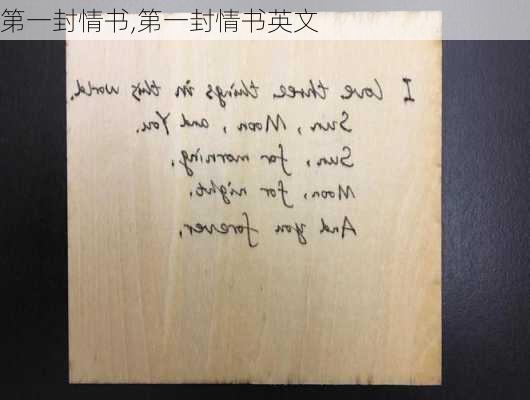 第一封情书,第一封情书英文
I love three things in this world.
Sun, Moon, and You.
Sun, for morning,
Moon, for night.
And you forever.